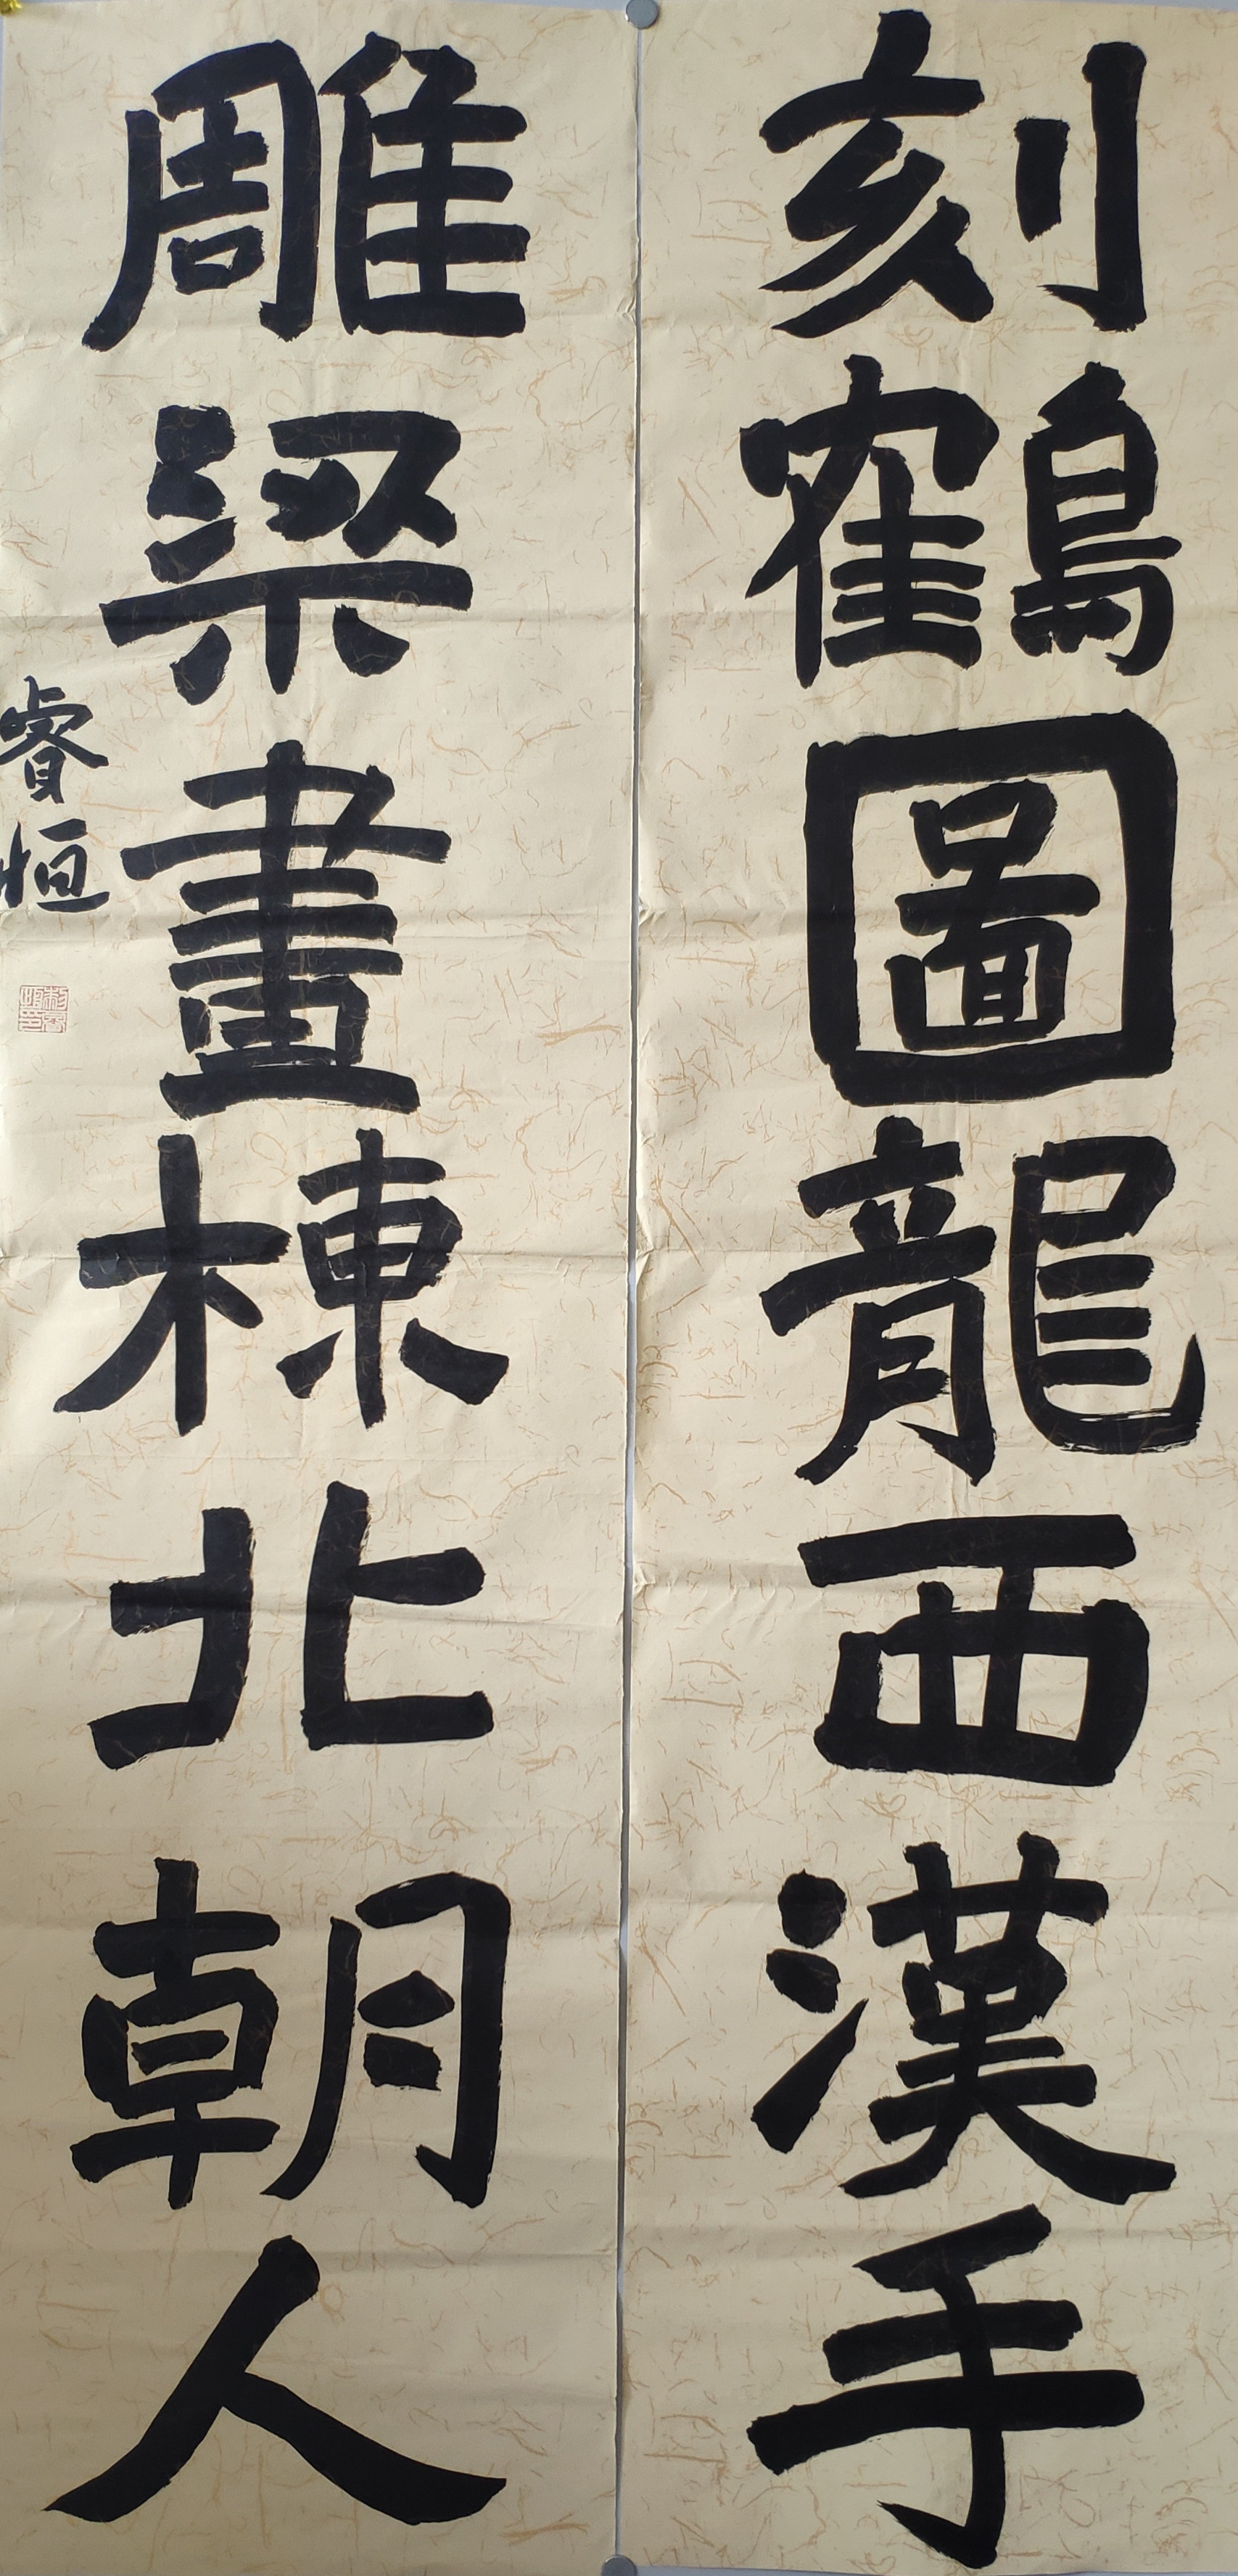 刻鶴圖龍西漢手
雕梁畫棟北朝人
睿恒